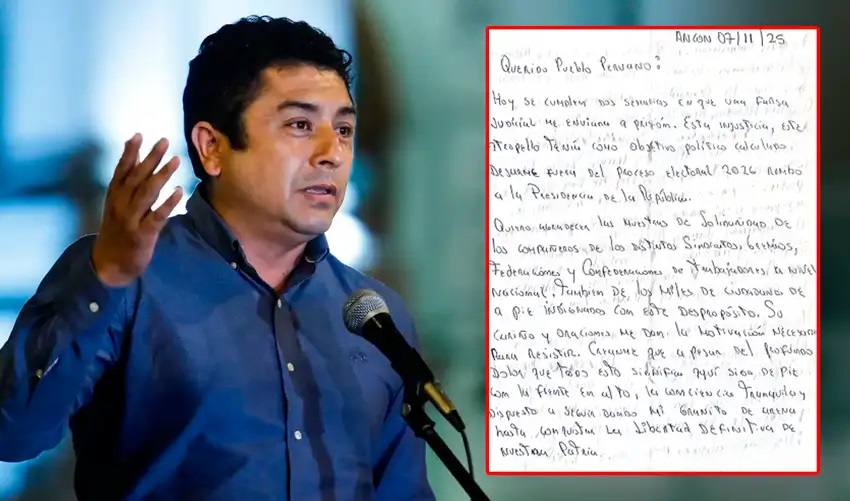 ANCON 07/11/25
QUERIDO PUEBLO PERUANO:
HOY SE CUMPLEN DOS SEMANAS EN QUE UNA FARSA
JUDICIAL ME ENVIARA A PRISIÓN. ESTA INJUSTICIA, ESTE
ATROPELLO TENIA COMO OBJETIVO POLÍTICO CALCULADO
DEJARME FUERA DEL PROCESO ELECTORAL 2026 RUMBO
A LA PRESIDENCIA DE LA REPÚBLICA.
QUIERO AGRADECER LAS MUESTRAS DE SOLIDARIDAD DE
LOS COMPAÑEROS DE LOS DISTINTOS SINDICATOS, GREMIOS,
FEDERACIONES Y CONFEDERACIONES DE TRABAJADORES A NIVEL
NACIONAL. TAMBIEN DE LOS MILES DE CIUDADANOS DE
A PIE INDIGNADOS CON ESTE DESPROPÓSITO. SU
CARIÑO Y ORACIONES ME DAN LA MOTIVACIÓN NECESARIA
PARA RESISTIR. CREANME QUE A PESAR DEL PROFUNDO
DOLOR QUE TODO ESTO SIGNIFICA AQUÍ SIGO DE PIE
CON LA FRENTE EN ALTO, LA CONSCIENCIA TRANQUILA Y
DISPUESTO A SEGUIR DANDO MI GRANITO DE ARENA
HASTA CONQUISTAR LA LIBERTAD DEFINITIVA DE
NUESTRA PATRIA.